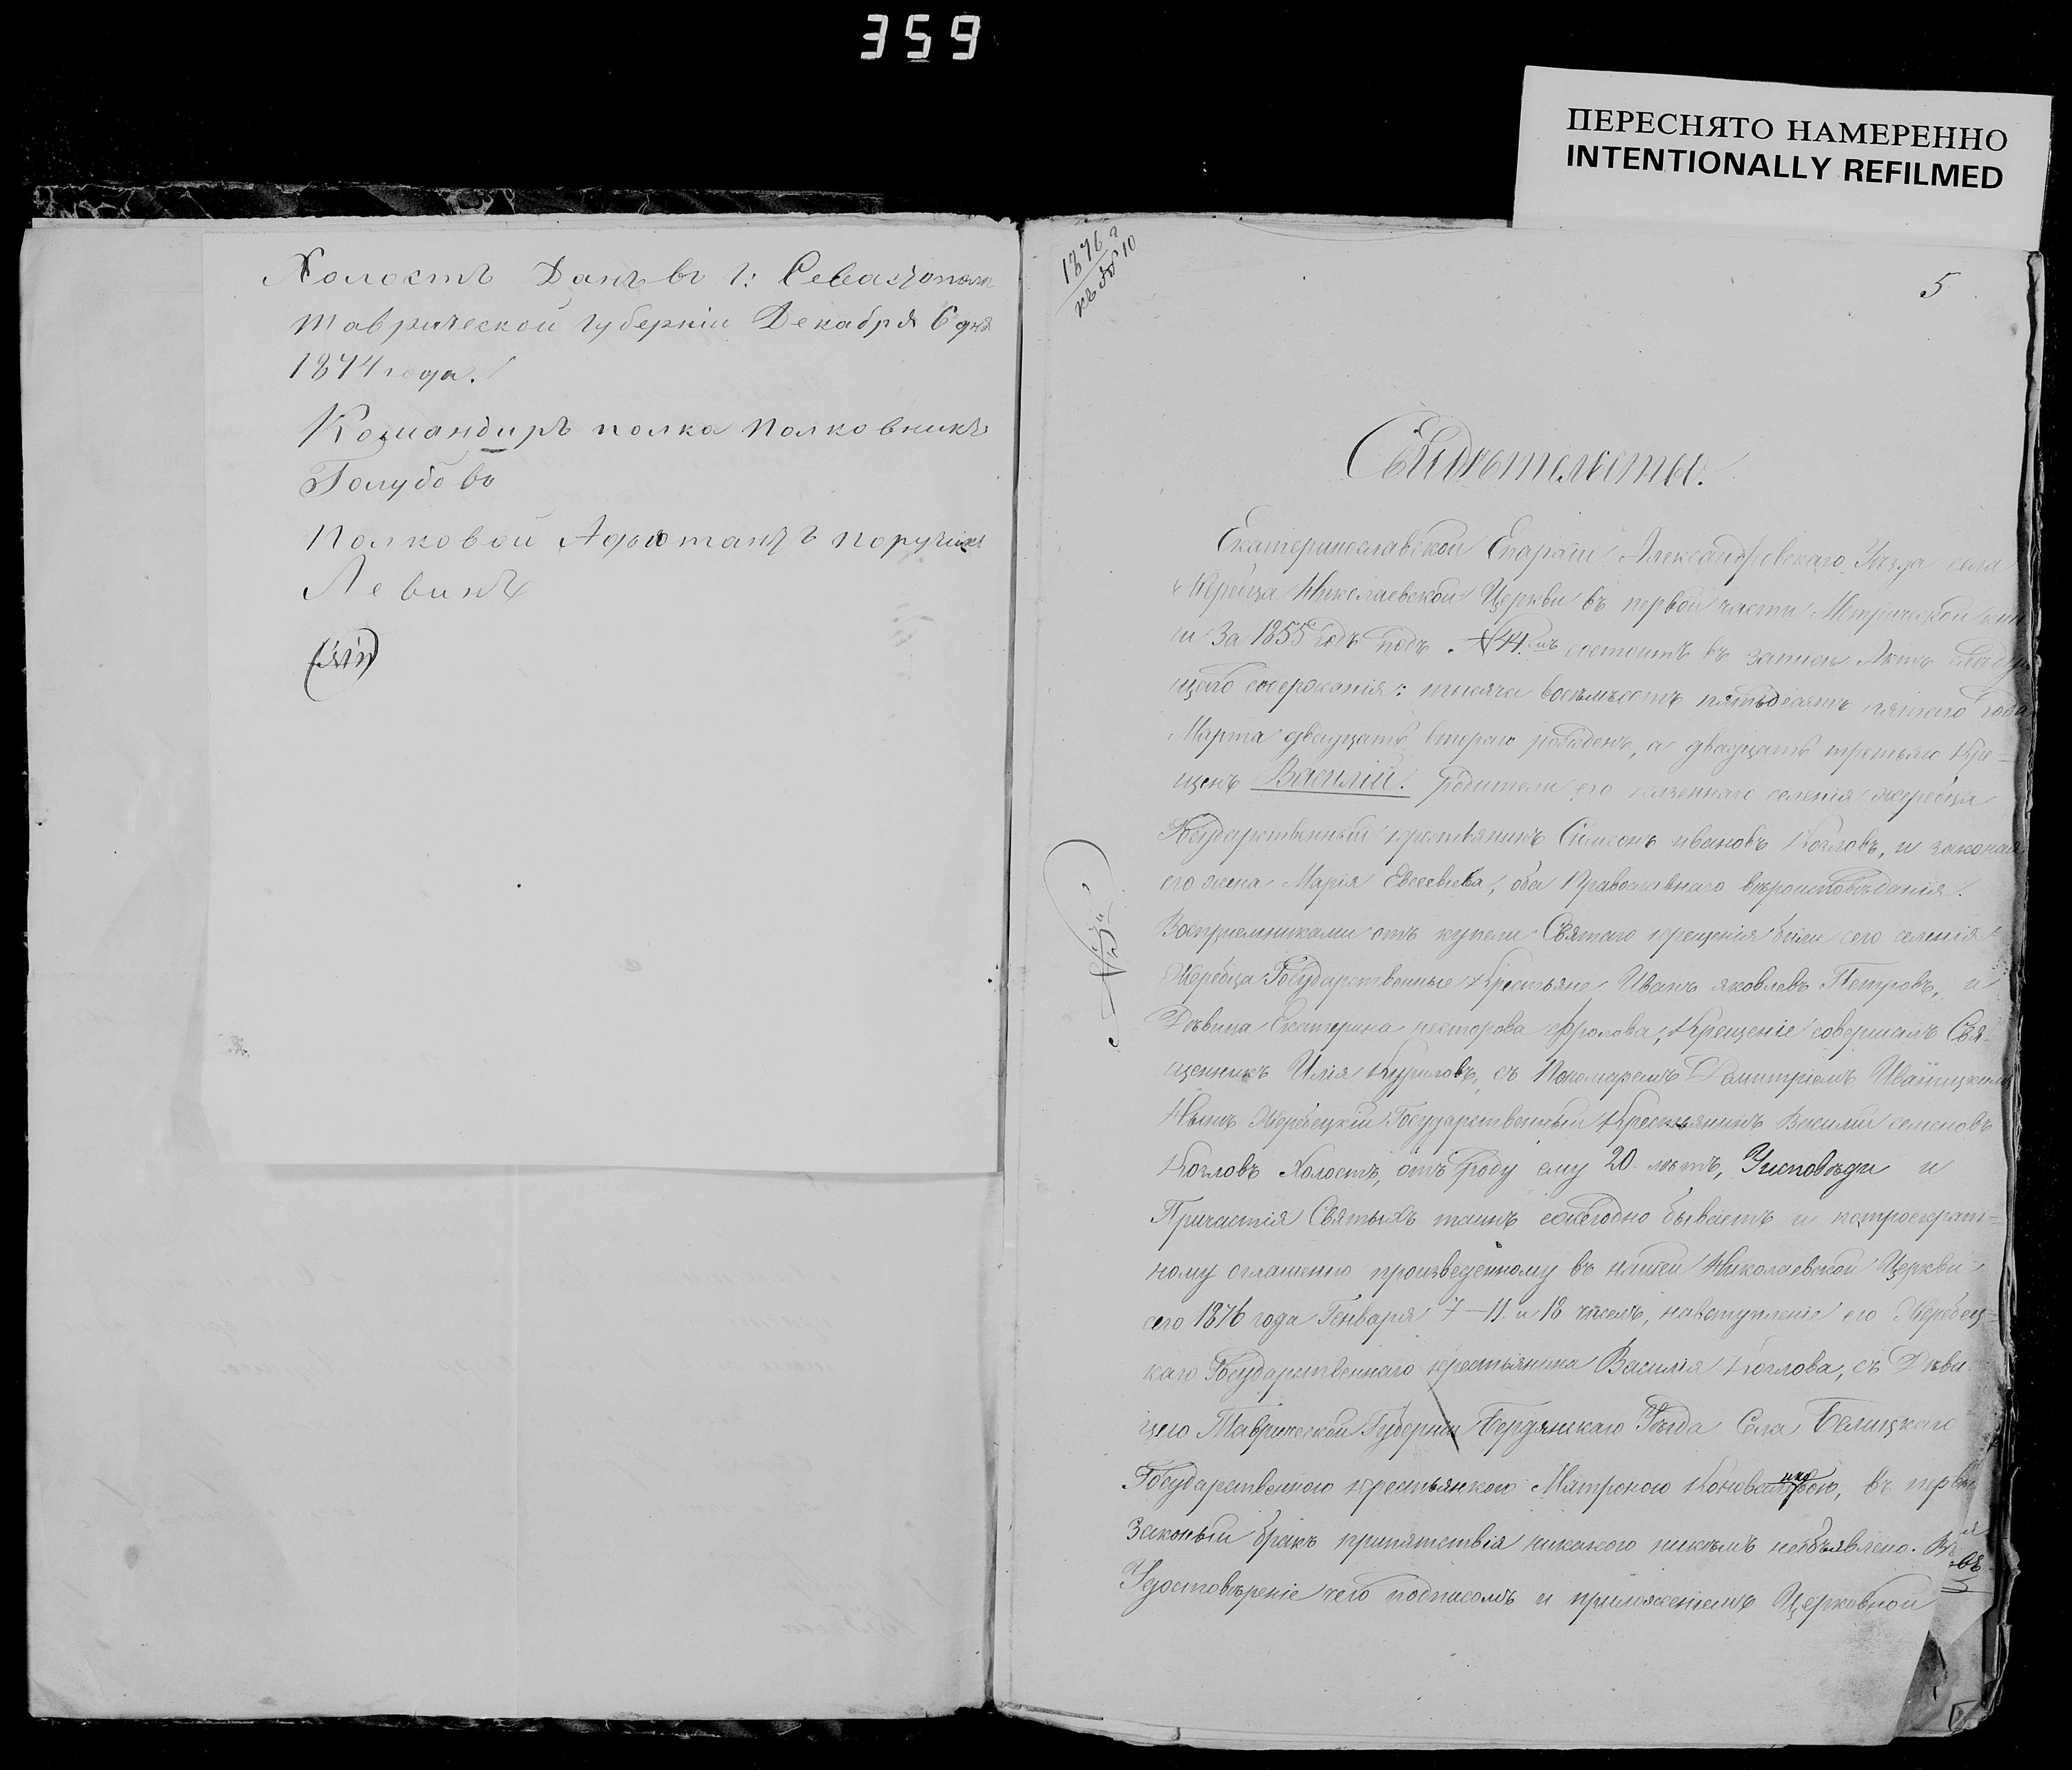 359
ПЕРЕСНЯТО НАМЕРЕННО
INTENTIONALLY REFILMED
Холостъ Данъ въ г: Севастополѣ
Таврической губерніи Декабря 6 дня
1874 года.
Командиръ полка Полковникъ
Голубовъ
Полковой Адъютантъ поручикъ
Левинъ
1876 г
къ № 10
5
Свидѣтельство.
Екатеринославской Епархіи Александровскаго Уѣзда села
Жеребца Николаевской Церкви въ первой части Метрической кни
ги За 1855 годъ подъ № 44.мъ состоитъ въ записи Актъ слѣдую
щего содержанія: тысяча восемьсотъ пятьдесятъ пятаго года
Марта двадцать втораго рожденъ, а двадцать третьяго Кре=
щенъ Василій. Родители его казеннаго селенія жеребца
Государственный крестьянинъ Симеонъ ивановъ Козловъ, и законая
его жена Марія Евсеевіева, оба Православнаго вѣроисповѣданія.
Воспріемниками отъ купели Святаго крещенія были сего селенія
Жеребца Государственные Крестьяне Иванъ яковлевъ Петровъ, и
Дѣвица Екатерина несторова Фролова, Крещеніе совершалъ Свя-
щенникъ Илія Куриловъ, съ Пономаремъ Димитріемъ Иваницкимъ
Нынѣ Жеребецкій Государственный Крестьянинъ Василій семеновъ
Козловъ Холостъ, отъ роду ему 20 лѣтъ, Уисповѣди и
Причастія Святыхъ таинъ ежегодно бываетъ и потроекрат=
ному оглашенію произведенному въ нашей Николаевской Церкви
сего 1876 года Генваря 7-11 и 18 чиселъ, навступленіе его Жеребец=
каго Государственнаго крестьянина Василія Козлова, съ Дѣви
цею Таврической Губерніи Бердянскаго Уѣзда Села Бѣлицкаго
Государственною крестьянкою Матроною, въ первый
Законый бракъ припятствія никакого никѣмъ необъявлено. Въ
Удостовѣреніе чего подписомъ и приложеніемъ Церковной